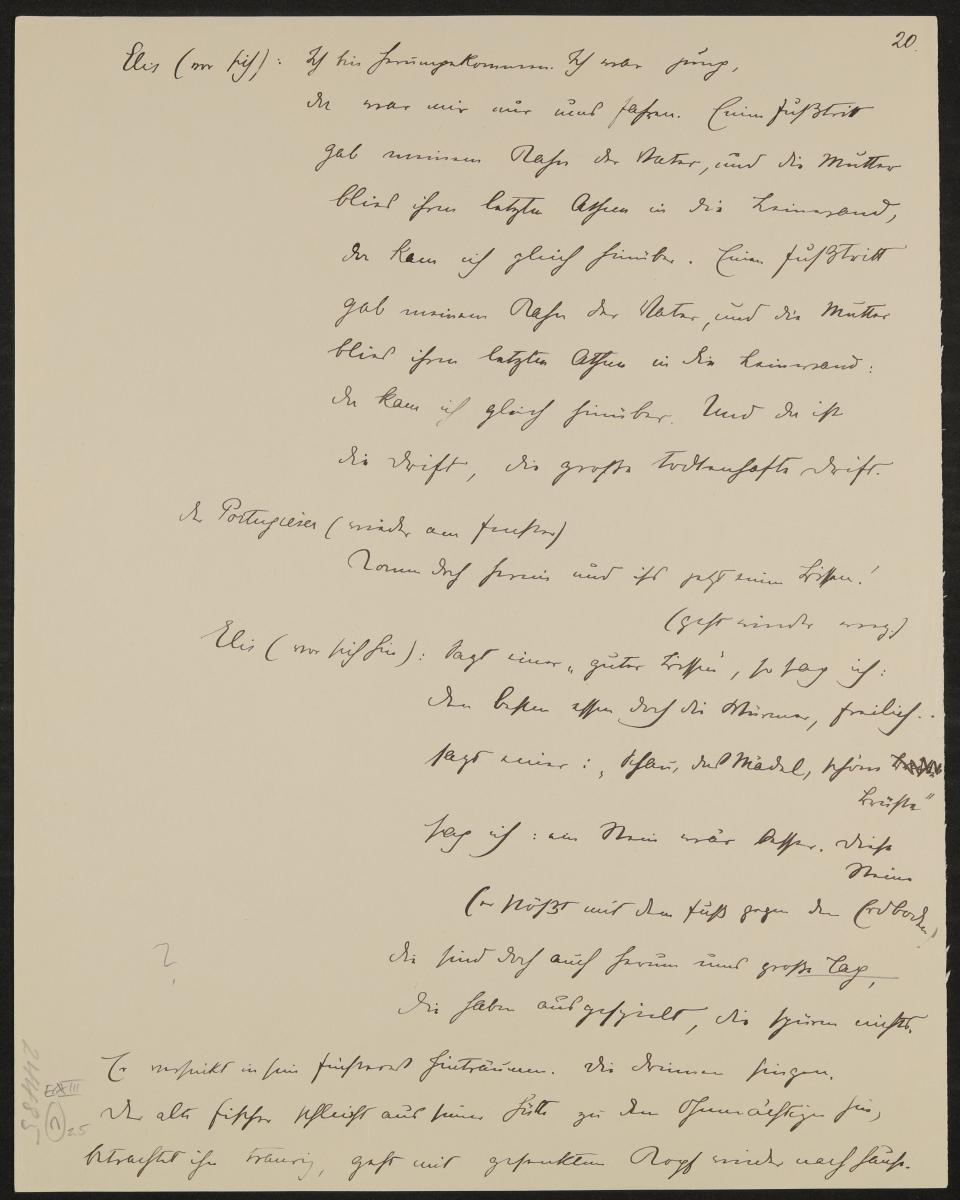 20.
Elis (vor sich): Ich bin herumgekommen. Ich war jung,
da war mir nur ums fahren. Einen Fußtritt
gab meinem Rahn der Vater, und die Mutter
blies ihren letzten Athem in die Leinwand,
da kam ich gleich hinüber. Einen Fußtritt
gab meinem Rahn der Vater, und die Mutter
blies ihren letzten Athem in die Leinwand:
da kam ich gleich hinüber. Und da ist
die Drift, die große todtenhafte Drift.
der Portugieser (wieder am Fenster)
Komm doch herein und iss jetzt einen Bissen!
(geht wieder weg.)
Elis (vor sich hin): Sagt einer „guter Bissen", so sag ich:
den besten essen doch die Würmer, freilich..
sagt einer: „schau, das Mädel, schöne
Brüste"
sag ich: ein Stein wär besser. Diese
Steine
(er stößt mit dem Fuß gegen den Erdboden)
die sind doch auch herum ums große Lap,
die haben ausgespielt, die spüren nichts.
Er versinkt in sein finsteres Hinträumen. Die drinnen singen.
Der alte Fischer schleicht aus seiner Hütte zu dem Ohnmächtigen hin,
betrachtet ihn traurig, geht mit gesenktem Kopf wieder nach Hause.
?
E IX III
2
25